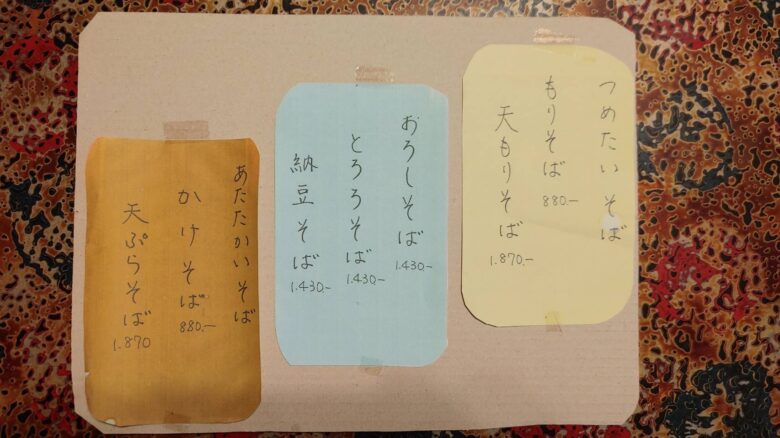 つめたいそば
もりそば 880.-
天もりそば 1.870.-
おろしそば 1.430-
とろろそば 1.430-
納豆そば 1.430-
あたたかいそば
かけそば 880.-
天ぷらそば 1.870